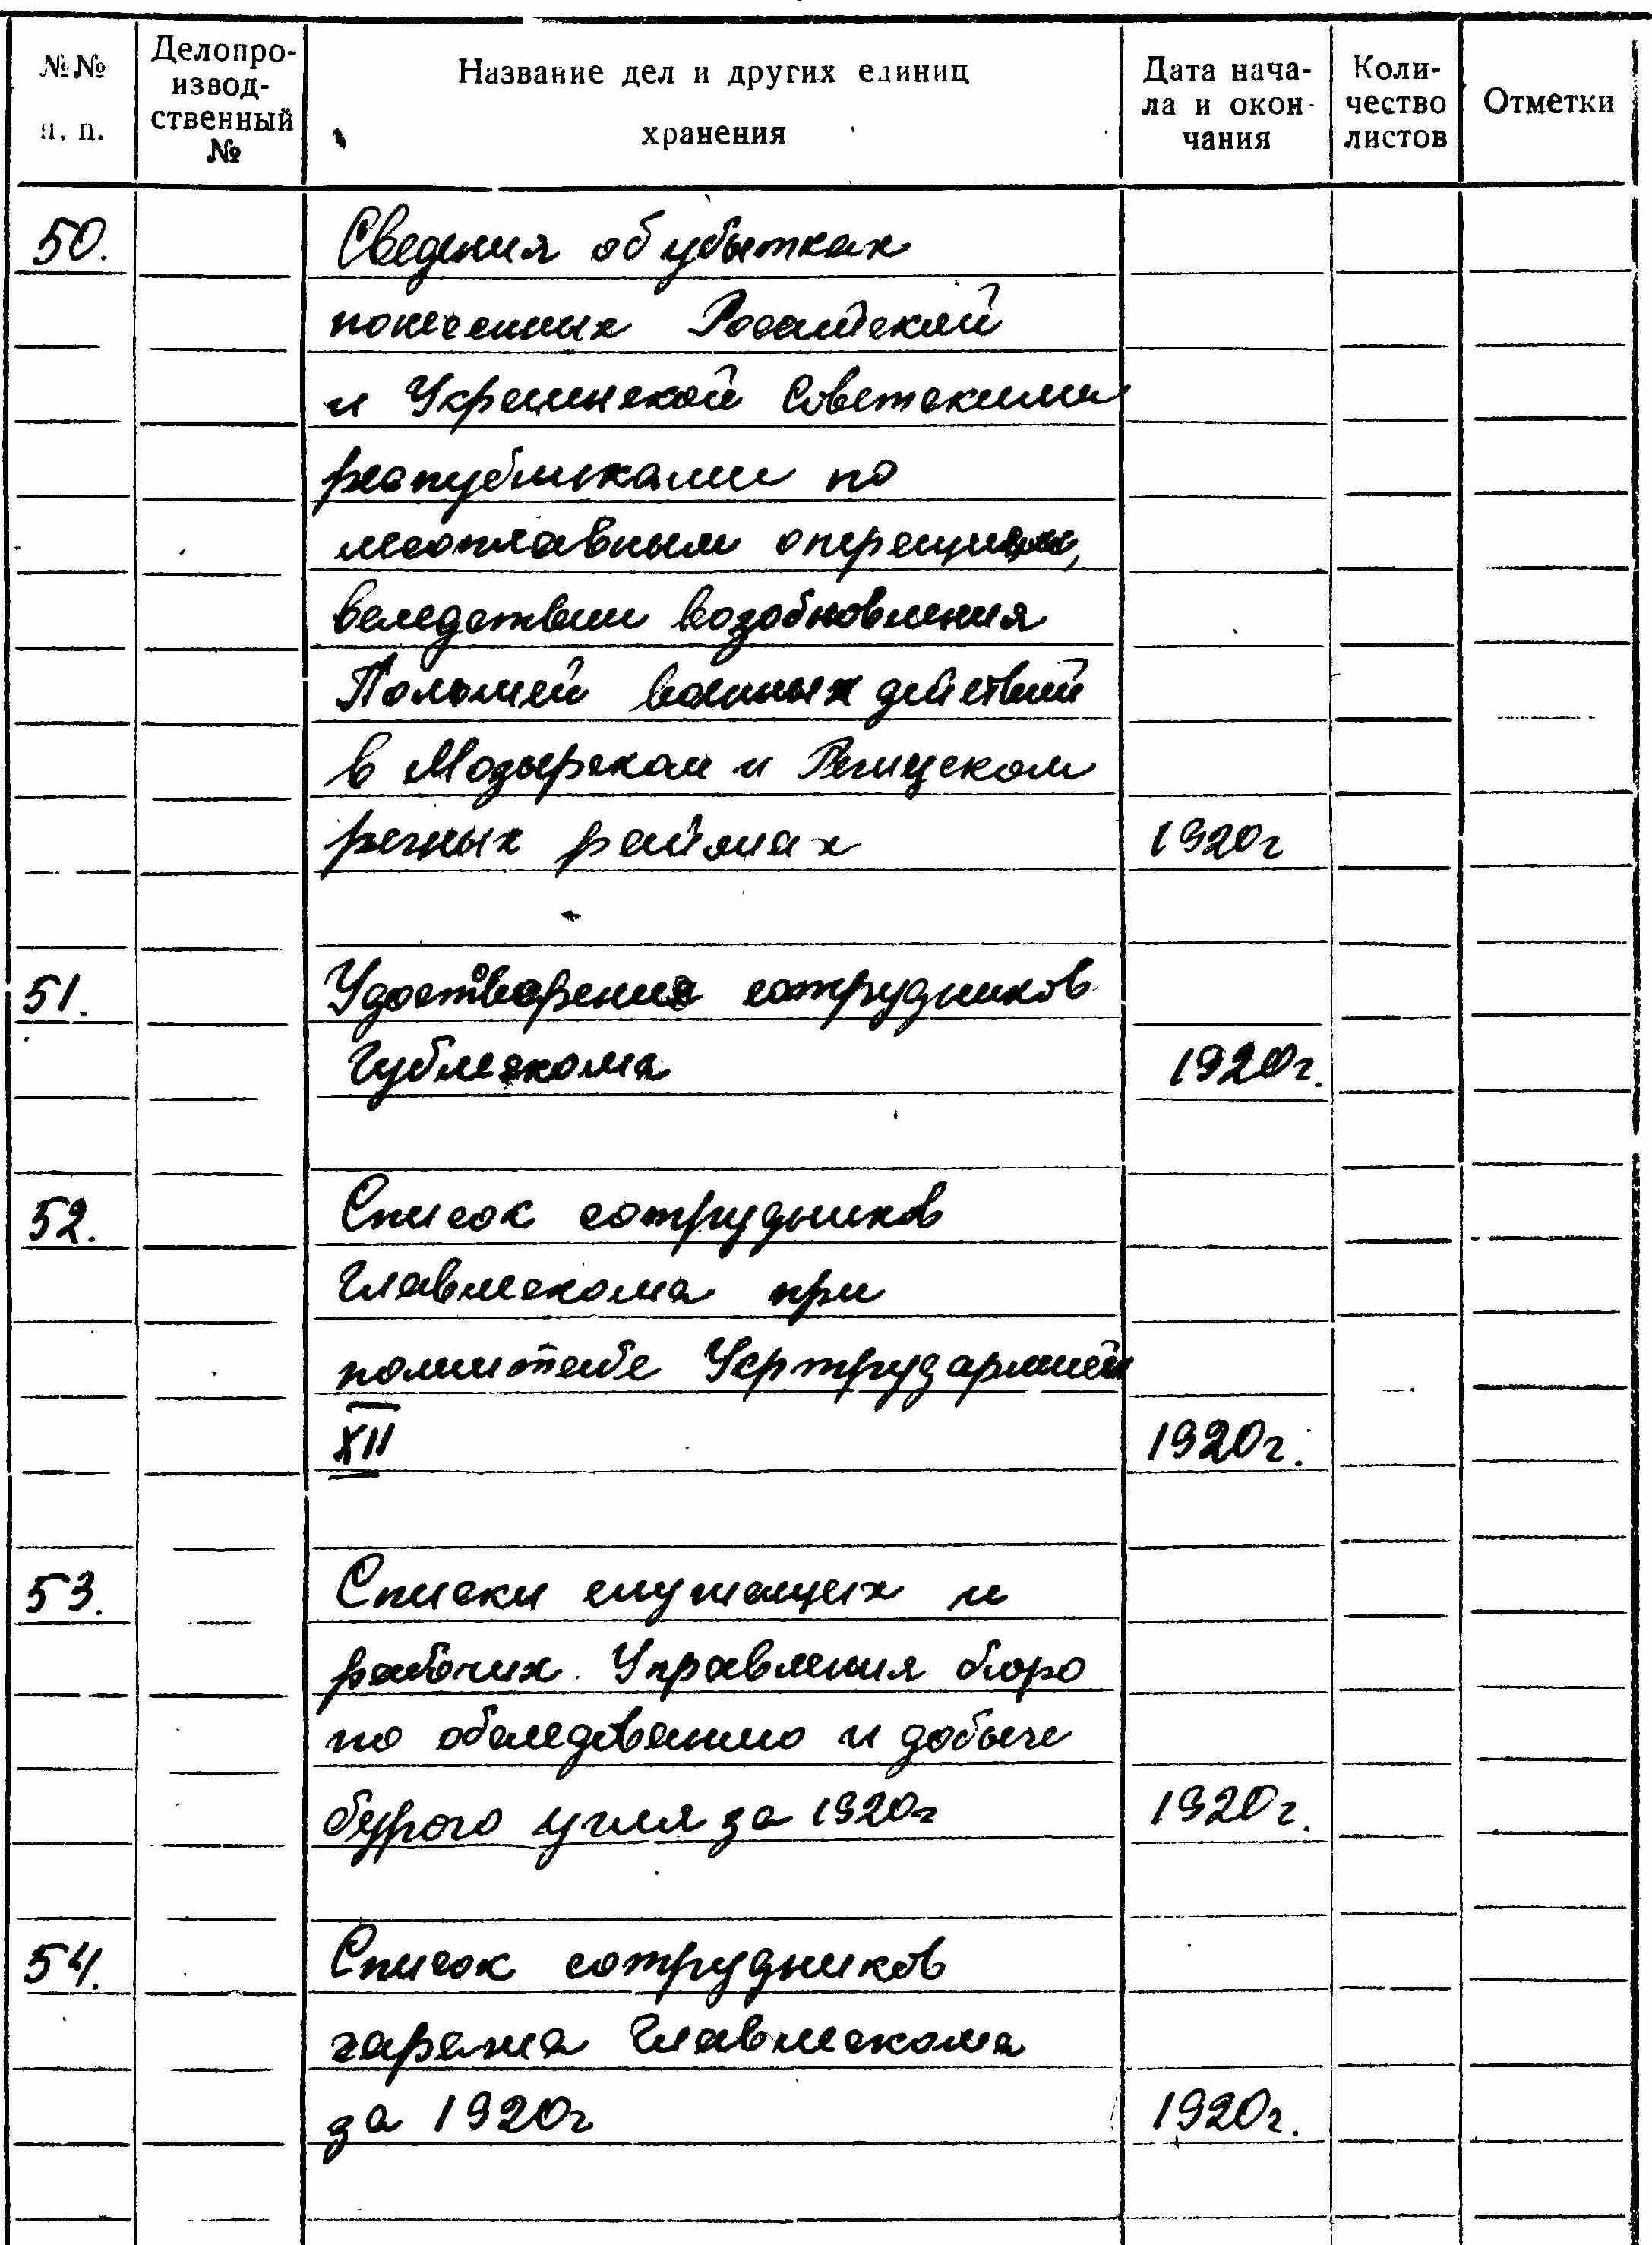 №№ п. п.
Делопро-
извод-
ственный
№
Название дел и других единиц
хранения
Дата нача-
ла и окон-
чания
Коли-
чество
листов
Отметки
50. Сведения об убытках
понесенных Российской
и Украинской Советскими
республиками по
лесосплавным операциям,
вследствии возобновления
Польшей военных действий
в Мозырском и Речицком
речных районах 1920г
51. Удостоверения сотрудников
Гублескома 1920г.
52. Список сотрудников
Главлескома при
полештабе Укртрудармией
XII 1920г.
53. Списки служащих и
рабочих. Управления бюро
по обследованию и добыче
бурого угля за 1920г 1920г.
54. Список сотрудников
гаража Главлескома
за 1920г 1920г.